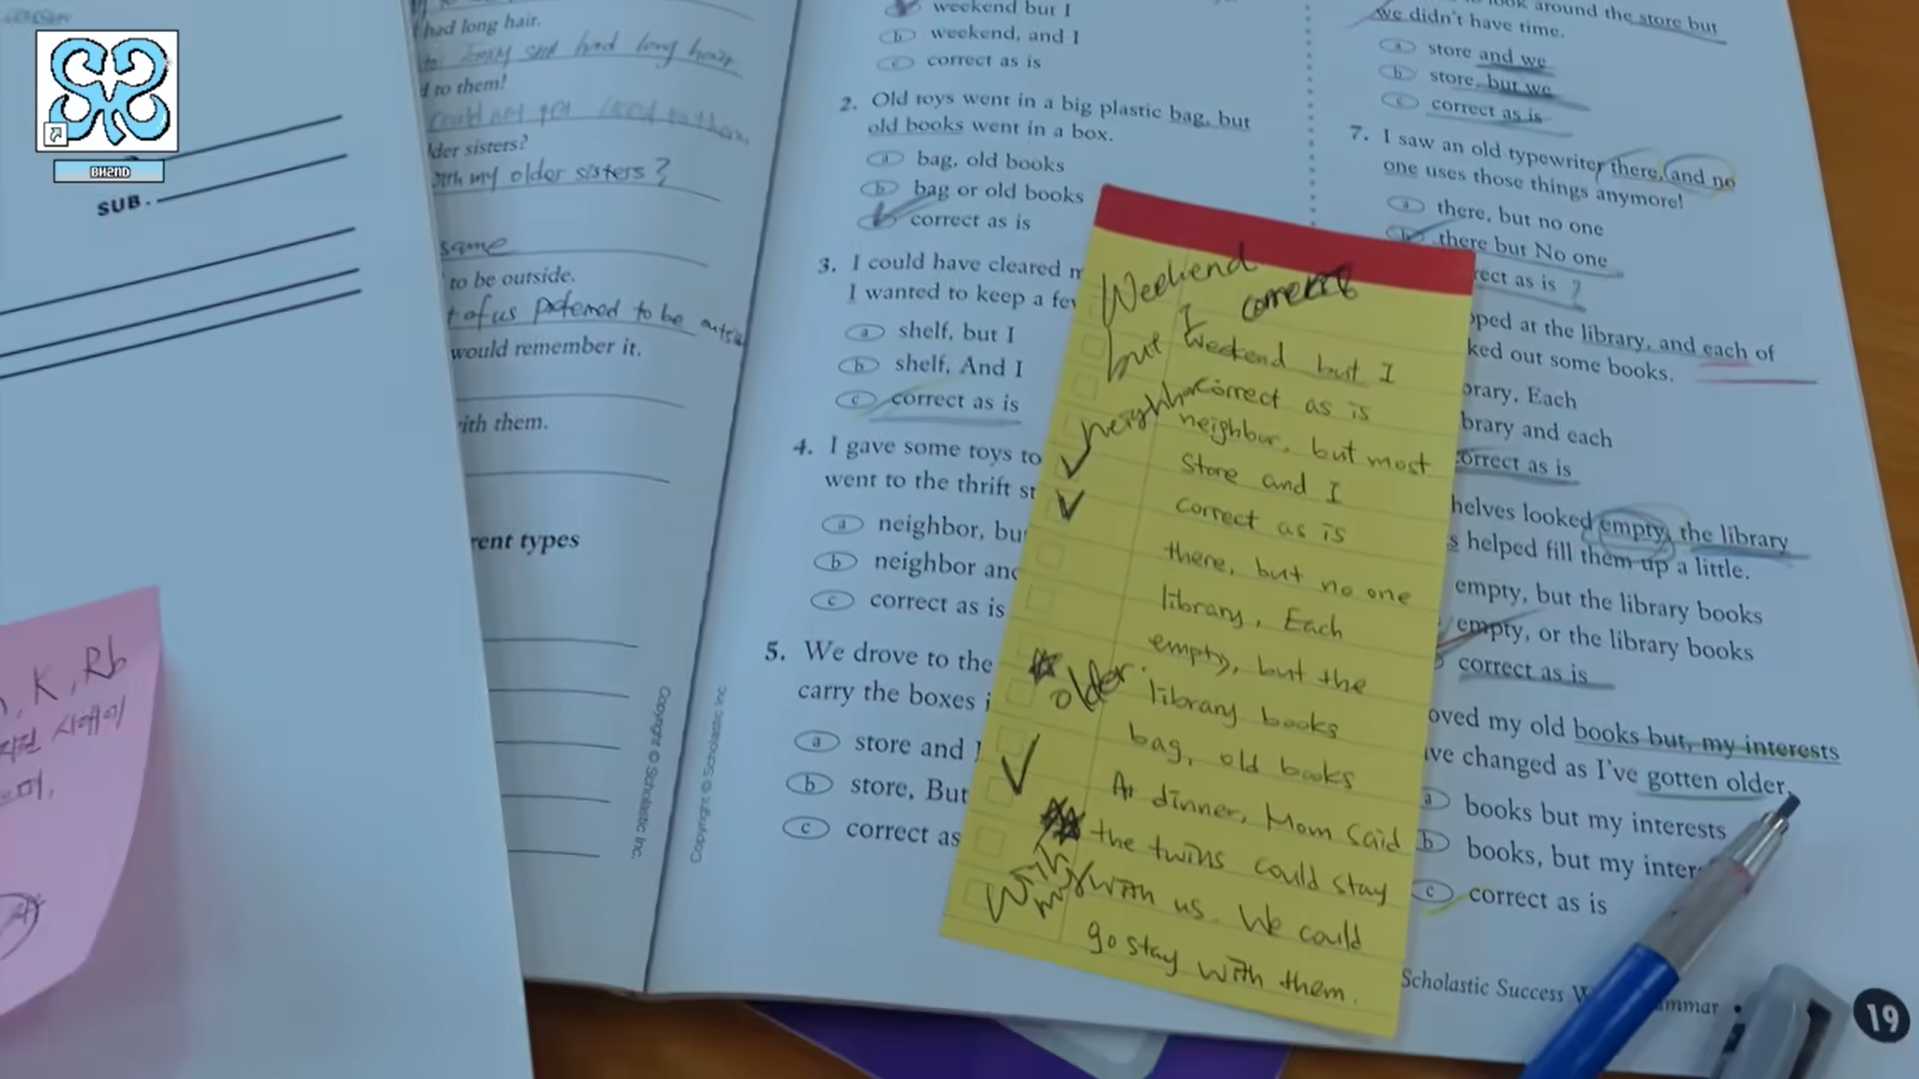 BH2ND
SUB.
had long hair.
Emily said had long hair
d to them!
could not get used to them
der sisters?
with my older sisters?
same
to be outside.
t of us preferred to be outside
would remember it.
ith them.
rent types
Copyright © Scholastic Inc.
K, Rb
weekend but I
b weekend, and I
c correct as is
2. Old toys went in a big plastic bag, but
old books went in a box.
a bag, old books
b bag or old books
correct as is
3. I could have cleared m
I wanted to keep a few
a shelf, but I
b shelf, And I
c correct as is
4. I gave some toys to
went to the thrift st
a neighbor, bu
b neighbor and
c correct as is
5. We drove to the
carry the boxes i
a store and I
b store, But
c correct as
Copyright © Scholastic Inc.
Weekend
I correct
but
Weekend but I
correct as is
neighbor
neighbor, but most
Store and I
correct as is
there, but no one
library, Each
empty, but the
older.
library books
bag, old books
At dinner, Mom said
the twins could stay
with us. We could
with
my
go stay with them.
look around the store but
we didn't have time.
a store and we
b store, but we
c correct as is
7. I saw an old typewriter there, and no
one uses those things anymore!
a there, but no one
b there but No one
rect as is ?
pped at the library, and each of
ked out some books.
brary, Each
brary and each
correct as is
helves looked empty, the library
s helped fill them up a little.
empty, but the library books
empty, or the library books
correct as is
oved my old books but, my interests
ve changed as I've gotten older.
a books but my interests
b books, but my inter
c correct as is
Scholastic Success W
mmar •
19